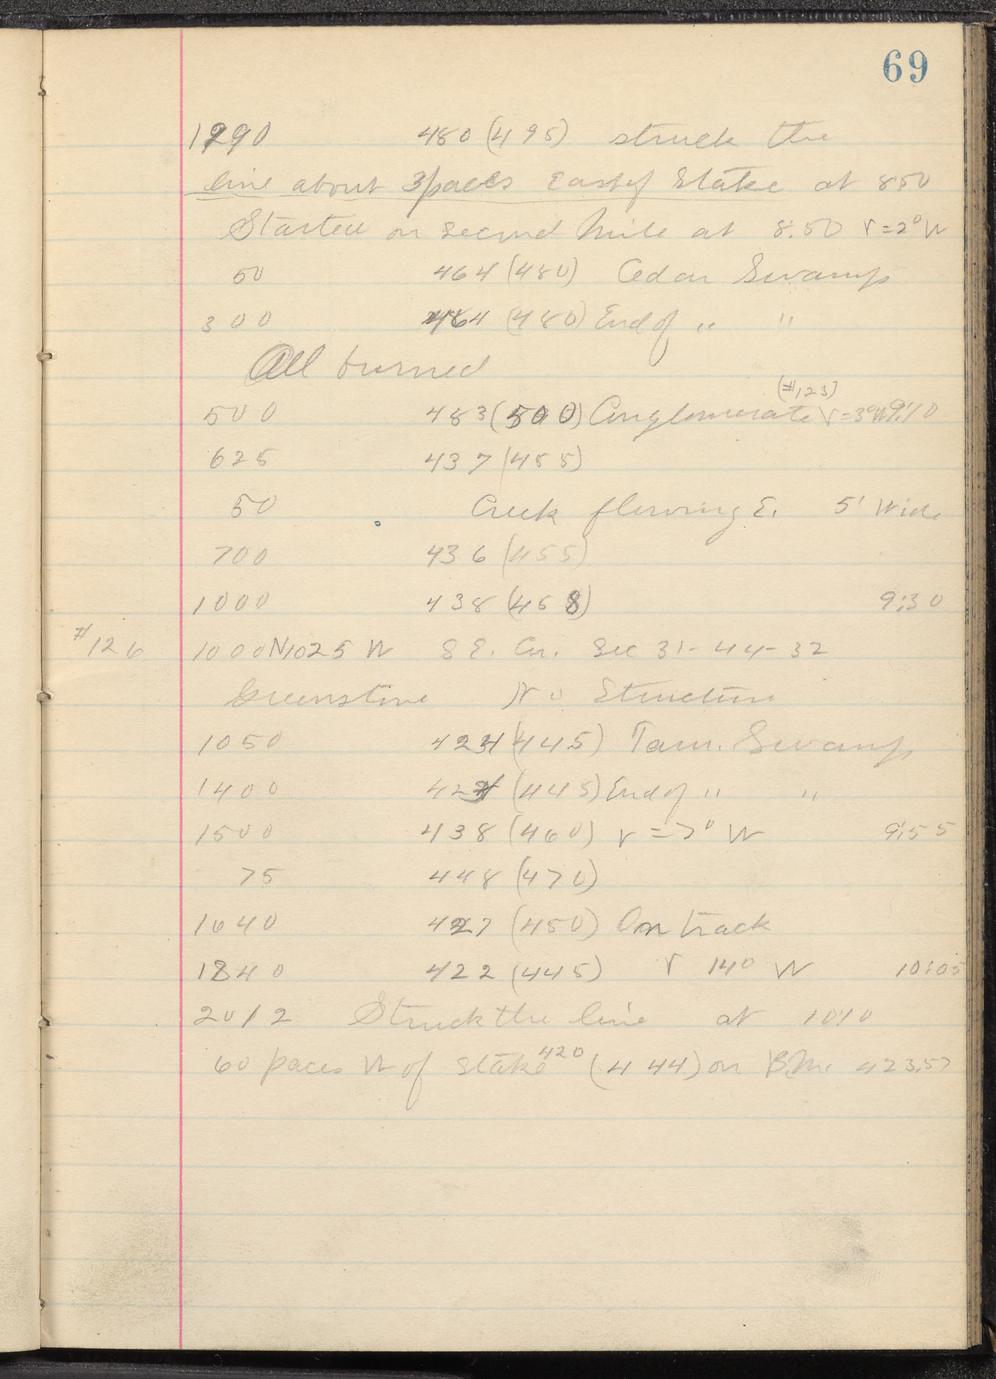 69
1990 480 (495) struck the
line about 3 paces East of Stake at 850
Started on Second Mile at 8.50 V=2° W
50 464 (480) Cedar Swamp
300 464 (480) End of " "
All burned
(#123)
500 483 (500) Conglomerate V=3°W 9:10
625 437 (455)
50 Creek flowing E. 5' Wide
700 436 (455)
1000 438 (458) 9:30
#126 1000N 1025 W S.E. Cor. Sec 31-44-32
Greenstone No Structure
1050 424 (445) Tam. Swamp
1400 424 (445) End of " "
1500 438 (460) V=7° W 9:55
75 448 (470)
1640 427 (450) On track
1840 422 (445) V 14° W 10:05
2012 Struck the line at 10:10
60 paces W of Stake 420 (444) on B.M. 423.57